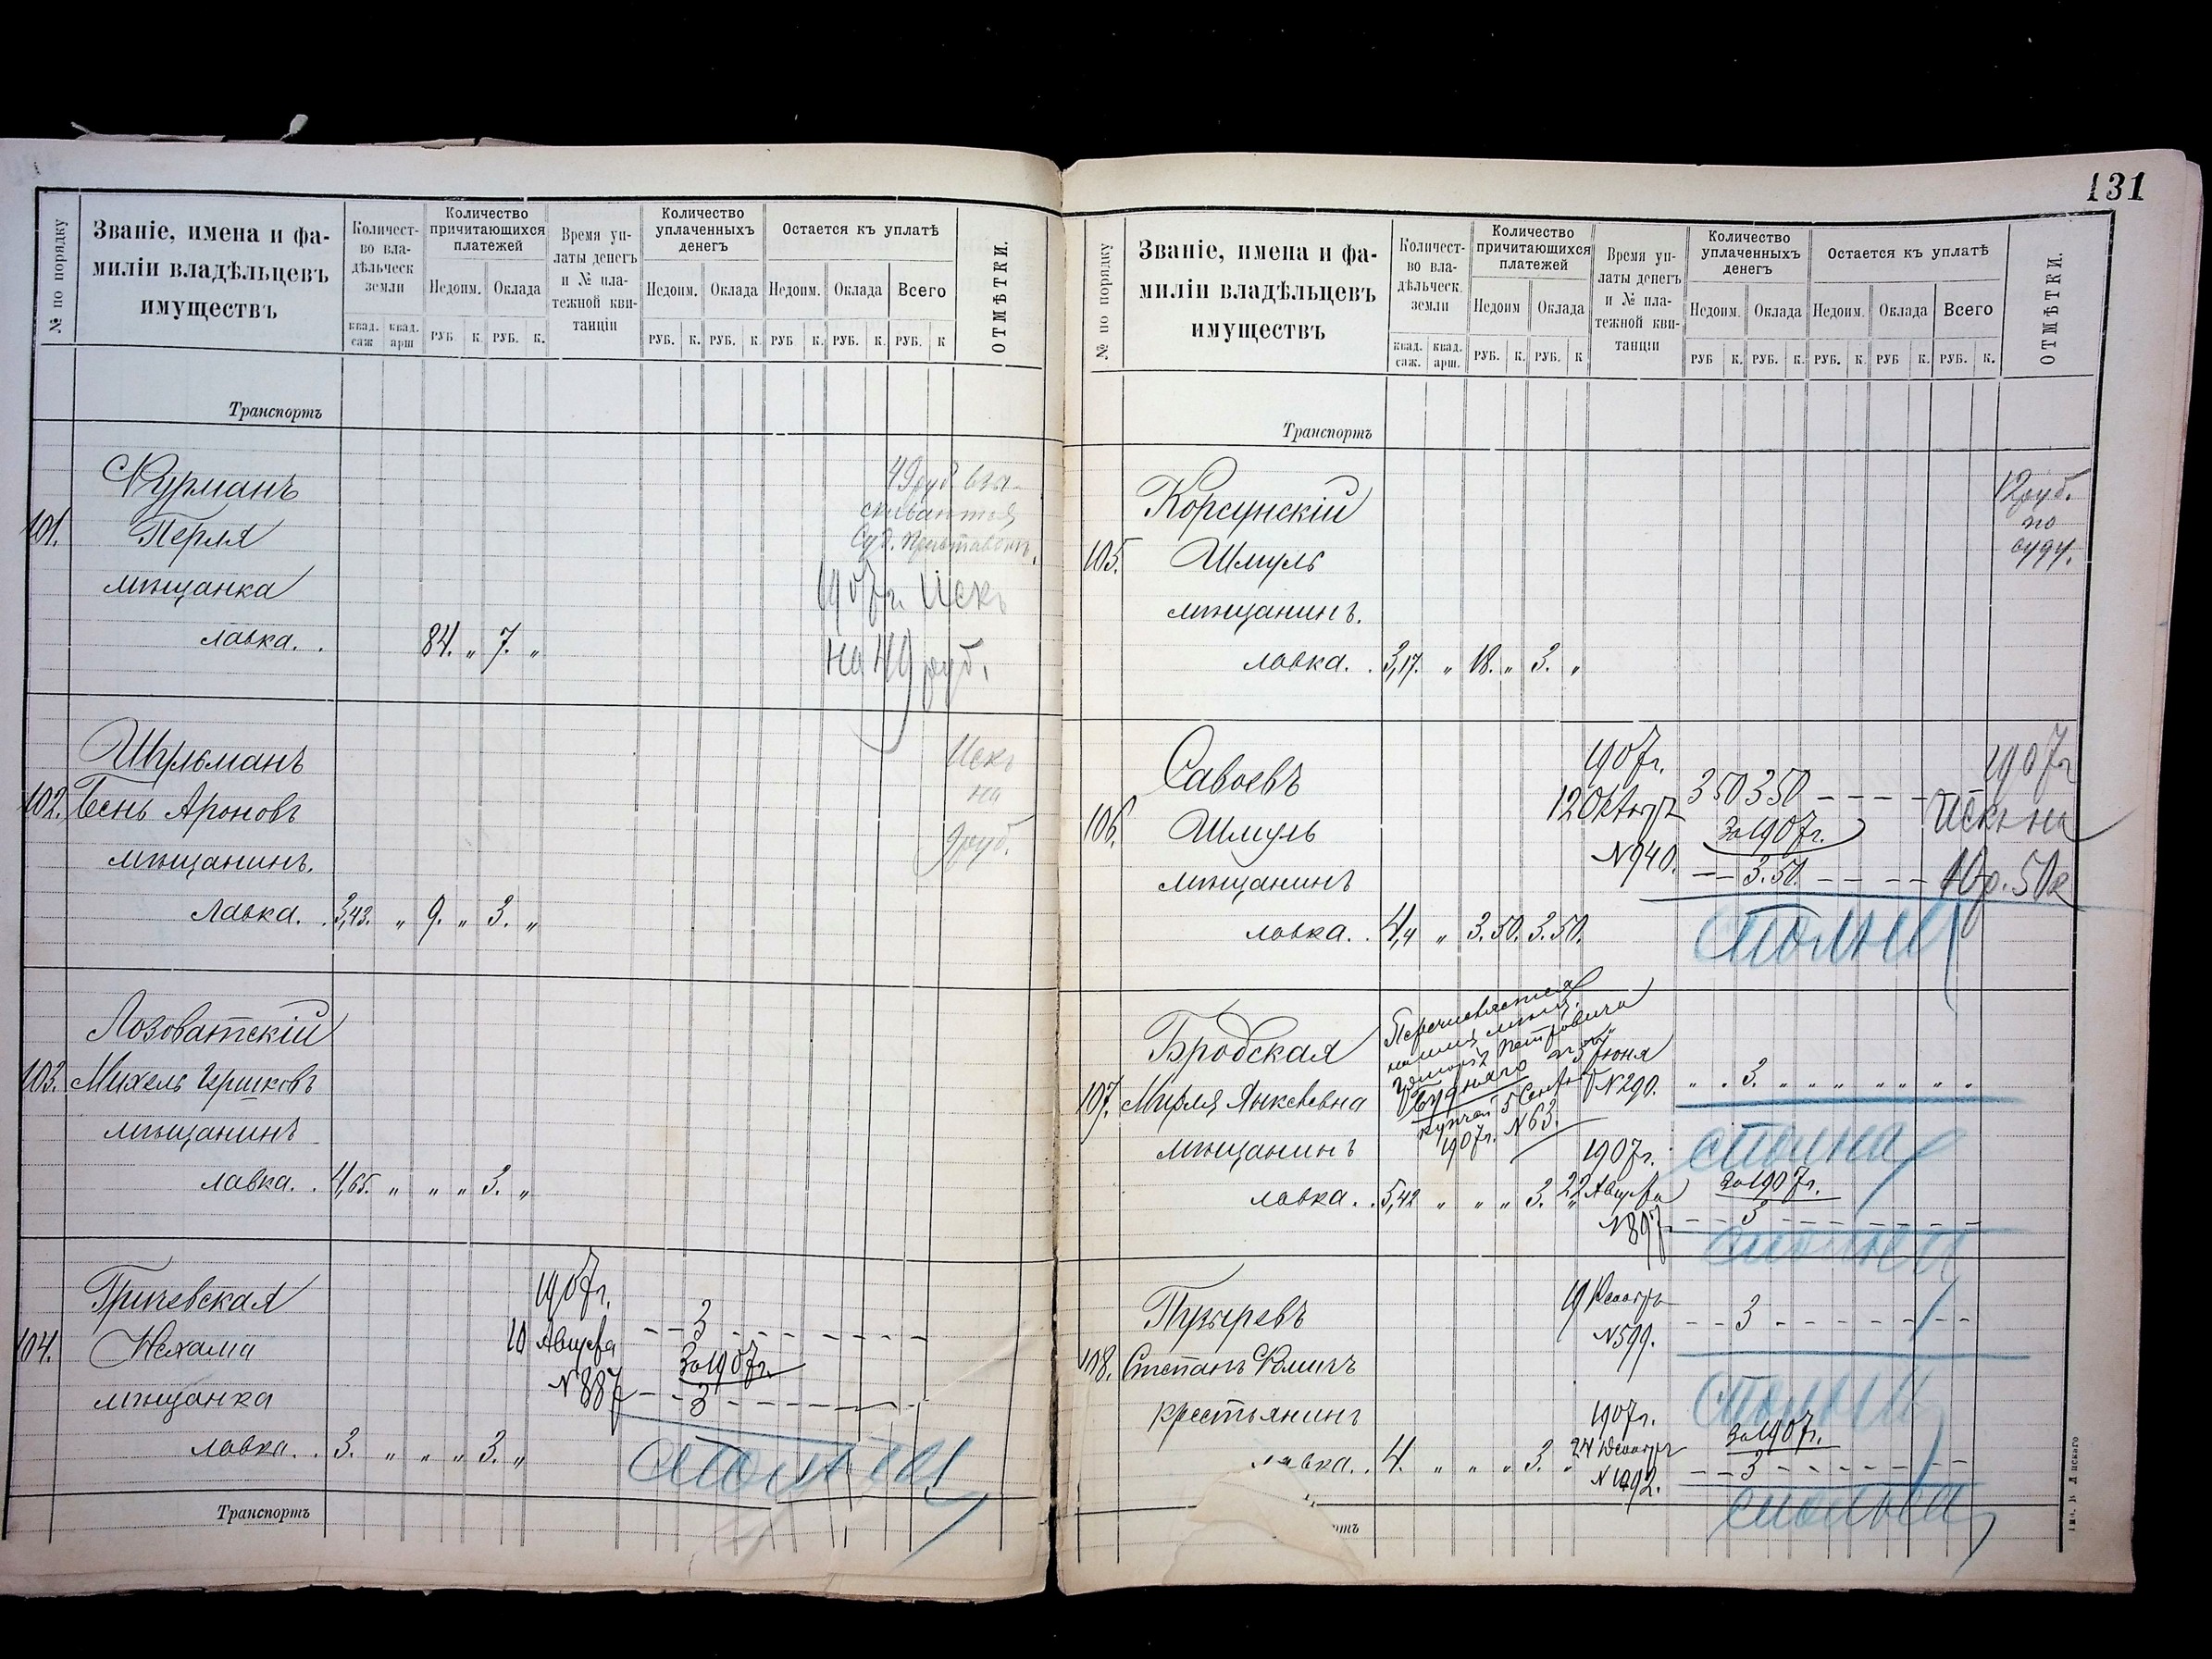 131
№ по порядку
Званіе, имена и фа-
миліи владѣльцевъ
имуществъ
Количест-
во вла-
дѣльческ
земли
квад. саж квад. арш
Количество
причитающихся
платежей
Недоим. Оклада
РУБ К РУБ. К.
Время уп-
латы денегъ
и № пла-
тежной кви-
танціи
Количество
уплаченныхъ
денегъ
Недоим. Оклада
РУБ. К. РУБ. К
Остается къ уплатѣ
Недоим. Оклада Всего
РУБ К. РУБ. К. РУБ. К
ОТМѢТКИ.
Транспортъ
Фурманъ
101. Перля
мѣщанка
лавка. . 84. „ 7. „
49 руб взы-
скиваются
Суд. Приставом.
1907г. Искъ
на 49 руб.
Шульманъ
102. Бень Ароновъ
мѣщанинъ.
Лавка. . 3,43. „ 9. „ 3. „
Искъ
на
9 руб.
Лозоватскій
103. Михель Гершковъ
мѣщанинъ
лавка. . 4,65. „ „ „ 3. „
Гричевская
104. Нехама
мѣщанка
лавка. . 3. „ „ „ 3. „
1907г.
10 Августа — — 3
За 1907г.
№ 887 — — 3
сполна
Транспортъ
№ по порядку
Званіе, имена и фа-
миліи владѣльцевъ
имуществъ
Количест-
во вла-
дѣльческ.
земли
квад. саж. квад. арш.
Количество
причитающихся
платежей
Недоим Оклада
РУБ. К. РУБ. К
Время уп-
латы денегъ
и № пла-
тежной кви-
танціи
Количество
уплаченныхъ
денегъ
Недоим. Оклада
РУБ К. РУБ. К.
Остается къ уплатѣ
Недоим. Оклада Всего
РУБ. К. РУБ К. РУБ. К.
ОТМѢТКИ.
Транспортъ
Корсунскій
105. Шмуль
мѣщанинъ.
лавка. . 3,17. „ 18. „ 3. „
12 руб.
по
суду.
Савоевъ
106. Шмуль
мѣщанинъ
лавка. . 4,4 „ 3.50. 3.50.
1907г.
12 Октября 3 50 3 50
За 1907г.
№ 940. — — 3.50.
1907г
Искъ на
10 р. 50 к
сполна
Бродская
107. Мирля Янкелевна
мѣщанинъ
лавка. . 5,42 „ „ „ 3. „
Перечисляется
на имя
Петровича
купчей 5 Сент
1907г. № 63.
5 Іюня
№ 290. „ . 3. „ „ „ „ „ „ .
сполна
1907г.
22 Августа За 1907г.
№ 897 — — 3
сполна
Пузыревъ
108. Степанъ
крестьянинъ
лавка. . 4. „ „ „ 3. „
19
№ 599. — — 3
сполна
1907г.
24 Декабря За 1907г.
№ 1092. — — 3
сполна